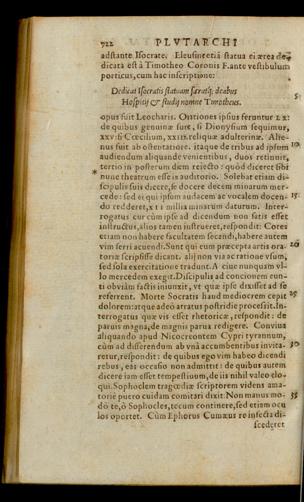 722 PLVTARCHI
adstante Isocrate. Eleusine etiã statua ei ærea de
dicata est à Timotheo Coronis F. ante vestibulum
porticus, cum hac inscriptione:
Dedicat Isocratis statuam deabus 5
Hospitij & studij nomine Timotheus.
opus fuit Leocharis. Orationes ipsius feruntur LX:
de quibus genuinæ sunt, si Dionysium sequimur,
XXV: si Cæcilium, XXIIX. reliquæ adulterinæ. Alie-
nus fuit ab ostentatione. itaque de tribus ad ipsum 10
audiendum aliquando venientibus, duos retinuit,
tertio in posterum diem reiecto: quòd diceret sibi
nunc theatrum esse in auditorio. Solebat etiam di-
* scipulis suis dicere, se docere decem minarum mer-
cede: sed ei qui ipsum audacem ac vocalem docen- 15
do redderet, XII millia minarum daturum. Inter-
rogatus cur cùm ipse ad dicendum non satis esset
instructus, alios tamen instrueret, respondit: Cotes
etiam non habere facultatem secandi, habere autem
vim ferri acuendi. Sunt qui eum præcepta artis ora- 20
toriæ scripsisse dicant. alij non via ac ratione vsum,
sed sola exercitatione tradunt. A ciue nunquam vl-
lo mercedem exegit. Discipulis ad concionem eun-
ti obviàm factis iniunxit, vt quæ ipse dixisset ad se
referrent. Morte Socratis haud mediocrem cepit 25
dolorem: atque adeò atratus postridie processit. In-
terrogatus quæ vis esset rhetoricæ, respondit: de
paruis magna, de magnis parua redigere. Conviua
aliquando apud Nicocreontem Cypri tyrannum,
cùm ad differendum ab vnà accumbentibus invita- 30
retur, respondit: de quibus ego vim habeo dicendi
rebus, eas occasio non admittit: de quibus autem
dicere iam esset tempestiuum, de iis nihil valeo elo-
qui. Sophoclem tragœdiæ scriptorem videns ama-
toriè puero cuidam comitari dixit: Non manus mo- 35
dò te, ò Sophocles, tecum continere, sed etiam ocu
los oportet. Cùm Ephorus Cumæus re infecta di-
scederet